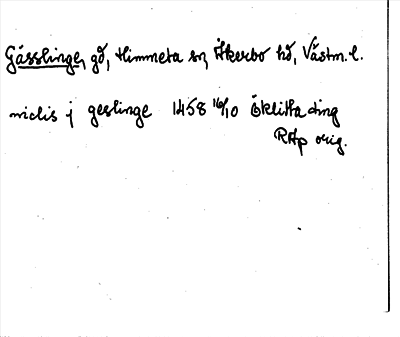 Gässlinge, gd, Himmeta sn, Åkerbo hd, Västm. l.
niclis j geslinge 1458 16/10 Öklista ding
RAp orig.